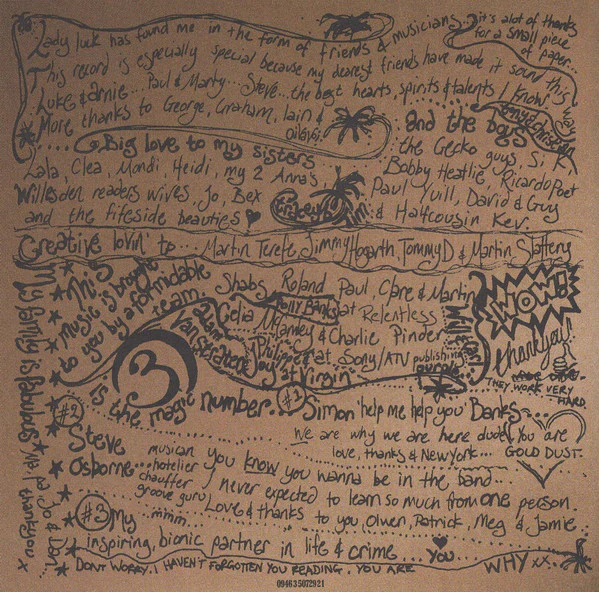 Lady luck has found me in the form of friends & musicians...it's alot of thanks
for a small piece
of paper...
This record is especially special because my dearest friends have made it sound this way
Luke & arnie... Paul & Marty... Steve... the best hearts, spirits & talents I know
More thanks to George, Graham, Iain &
....Big love to my sisters
Lala, Clea, Mandi, Heidi, my 2 Anna's,
Willesden readers wives, Jo, Bex
and the fifeside beauties
and the boys
the Gecko guys, Si,
Bobby Heatlie, Ricardo Poet
Paul Yuill, David & Guy
& Halfcousin Kev.
Creative lovin' to... Martin Terefe, Jimmy Hogarth, Tommy D & Martin Slattery
My family is fabulous
Ma, Pa, Jo & Dan
I thankyou x
This
music is brought
to you by a formidable
team
Shabs, Roland, Paul, Clare & Martin
Polly Banks at Relentless
Celia McCamley & Charlie Pinder
at Sony/ATV publishing
Adam
Van Straten
Philippe
Joy at Virgin
purple
WOW!!
thankyou!
THEY WORK VERY
HARD
3
is the magic number...
#1 Simon 'help me help you' Banks...
We are why we are here dude. You are
love, thanks & New York... GOLD DUST.
#2
Steve
Osborne
musician
...hotelier
chauffer
groove guru
mmm
you know you wanna be in the band...
I never expected to learn so much from one person.
Love & thanks to you, Oliver, Patrick, Meg & Jamie
#3 My
inspiring, bionic partner in life & crime... You...
DONT WORRY. I HAVEN'T FORGOTTEN YOU READING. YOU ARE WHY xx.
094635072921